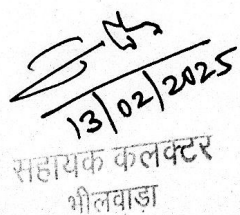 13/02/2025
सहायक कलक्टर
भीलवाडा